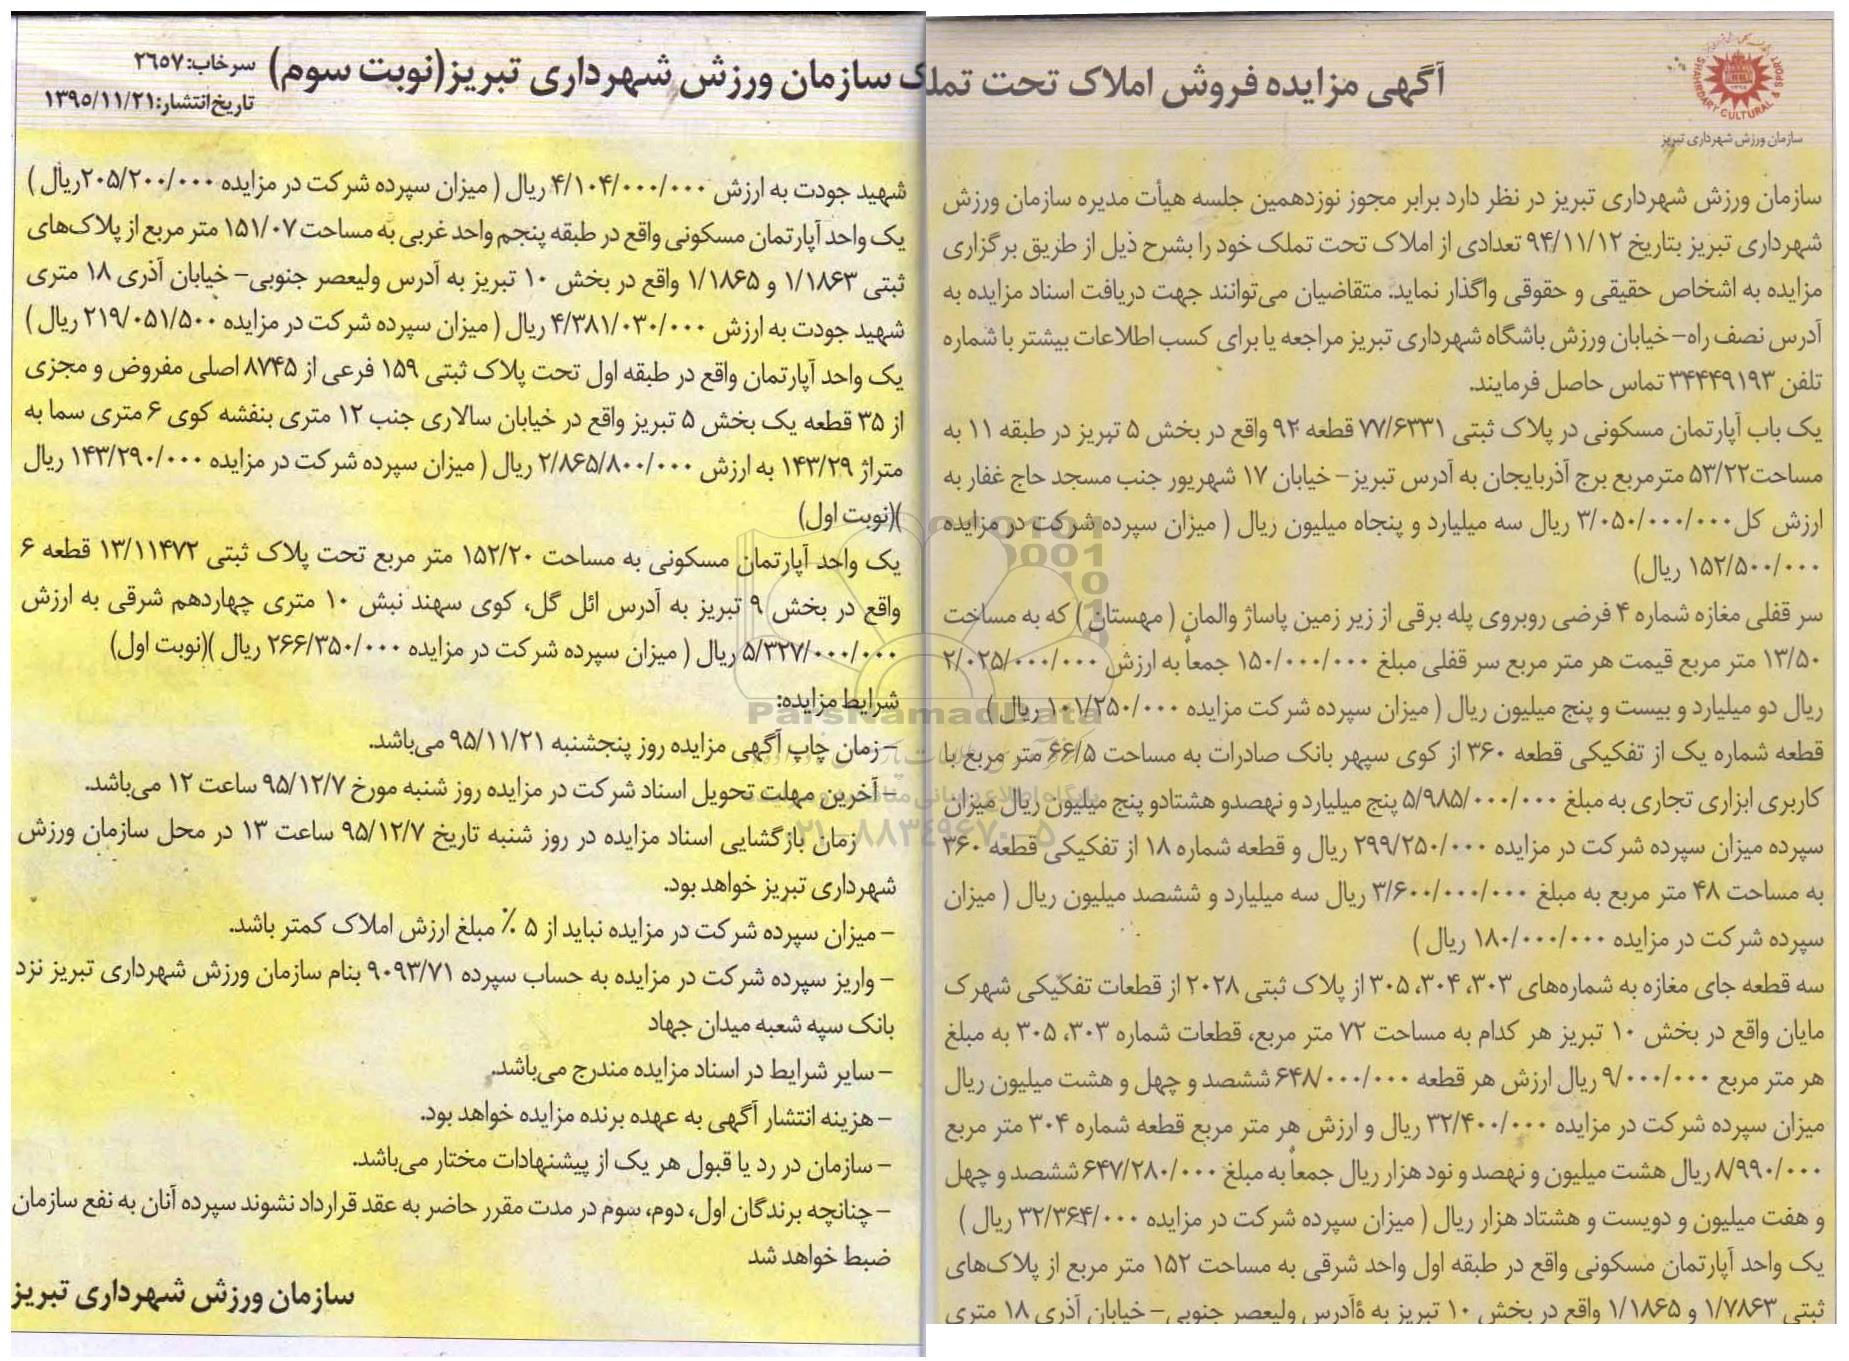 آگهی مزایده فروش املاک تحت تملک سازمان ورزش شهرداری تبریز(نوبت سوم)
سرخاب: ۲۶۵۷
تاریخ انتشار: ۱۳۹۵/۱۱/۲۱
SHAHRDARY CULTURAL & SPORT
سازمان ورزش شهرداری تبریز
سازمان ورزش شهرداری تبریز در نظر دارد برابر مجوز نوزدهمین جلسه هیأت مدیره سازمان ورزش
شهرداری تبریز بتاریخ ۹۴/۱۱/۱۲ تعدادی از املاک تحت تملک خود را بشرح ذیل از طریق برگزاری
مزایده به اشخاص حقیقی و حقوقی واگذار نماید. متقاضیان می‌توانند جهت دریافت اسناد مزایده به
آدرس نصف راه- خیابان ورزش باشگاه شهرداری تبریز مراجعه یا برای کسب اطلاعات بیشتر با شماره
تلفن ۳۴۴۴۹۱۹۳ تماس حاصل فرمایند.
یک باب آپارتمان مسکونی در پلاک ثبتی ۷۷/۶۳۳۱ قطعه ۹۲ واقع در بخش ۵ تبریز در طبقه ۱۱ به
مساحت۵۳/۲۲ مترمربع برج آذربایجان به آدرس تبریز- خیابان ۱۷ شهریور جنب مسجد حاج غفار به
ارزش کل۳/۰۵۰/۰۰۰/۰۰۰ ریال سه میلیارد و پنجاه میلیون ریال ( میزان سپرده شرکت در مزایده
۱۵۲/۵۰۰/۰۰۰ ریال)
سر قفلی مغازه شماره ۴ فرضی روبروی پله برقی از زیر زمین پاساژ والمان ( مهستان ) که به مساحت
۱۳/۵۰ متر مربع قیمت هر متر مربع سر قفلی مبلغ ۱۵۰/۰۰۰/۰۰۰ جمعاً به ارزش ۲/۰۲۵/۰۰۰/۰۰۰
ریال دو میلیارد و بیست و پنج میلیون ریال ( میزان سپرده شرکت مزایده ۱۰۱/۲۵۰/۰۰۰ ریال )
قطعه شماره یک از تفکیکی قطعه ۳۶۰ از کوی سپهر بانک صادرات به مساحت ۶۶/۵ متر مربع با
کاربری ابزاری تجاری به مبلغ ۵/۹۸۵/۰۰۰/۰۰۰ پنج میلیارد و نهصدو هشتادو پنج میلیون ریال میزان
سپرده میزان سپرده شرکت در مزایده ۲۹۹/۲۵۰/۰۰۰ ریال و قطعه شماره ۱۸ از تفکیکی قطعه ۳۶۰
به مساحت ۴۸ متر مربع به مبلغ ۳/۶۰۰/۰۰۰/۰۰۰ ریال سه میلیارد و ششصد میلیون ریال ( میزان
سپرده شرکت در مزایده ۱۸۰/۰۰۰/۰۰۰ ریال )
سه قطعه جای مغازه به شماره‌های ۳۰۳، ۳۰۴، ۳۰۵ از پلاک ثبتی ۲۰۲۸ از قطعات تفکیکی شهرک
مایان واقع در بخش ۱۰ تبریز هر کدام به مساحت ۷۲ متر مربع، قطعات شماره ۳۰۳، ۳۰۵ به مبلغ
هر متر مربع ۹/۰۰۰/۰۰۰ ریال ارزش هر قطعه ۶۴۸/۰۰۰/۰۰۰ ششصد و چهل و هشت میلیون ریال
میزان سپرده شرکت در مزایده ۳۲/۴۰۰/۰۰۰ ریال و ارزش هر متر مربع قطعه شماره ۳۰۴ متر مربع
۸/۹۹۰/۰۰۰ ریال هشت میلیون و نهصد و نود هزار ریال جمعاً به مبلغ ۶۴۷/۲۸۰/۰۰۰ ششصد و چهل
و هفت میلیون و دویست و هشتاد هزار ریال ( میزان سپرده شرکت در مزایده ۳۲/۳۶۴/۰۰۰ ریال )
یک واحد آپارتمان مسکونی واقع در طبقه اول واحد شرقی به مساحت ۱۵۲ متر مربع از پلاک‌های
ثبتی ۱/۷۸۶۳ و ۱/۱۸۶۵ واقع در بخش ۱۰ تبریز به ةآدرس ولیعصر جنوبی- خیابان آذری ۱۸ متری
شهید جودت به ارزش ۴/۱۰۴/۰۰۰/۰۰۰ ریال ( میزان سپرده شرکت در مزایده ۲۰۵/۲۰۰/۰۰۰ریال )
یک واحد آپارتمان مسکونی واقع در طبقه پنجم واحد غربی به مساحت ۱۵۱/۰۷ متر مربع از پلاک‌های
ثبتی ۱/۱۸۶۳ و ۱/۱۸۶۵ واقع در بخش ۱۰ تبریز به آدرس ولیعصر جنوبی- خیابان آذری ۱۸ متری
شهید جودت به ارزش ۴/۳۸۱/۰۳۰/۰۰۰ ریال ( میزان سپرده شرکت در مزایده ۲۱۹/۰۵۱/۵۰۰ ریال )
یک واحد آپارتمان واقع در طبقه اول تحت پلاک ثبتی ۱۵۹ فرعی از ۸۷۴۵ اصلی مفروض و مجزی
از ۳۵ قطعه یک بخش ۵ تبریز واقع در خیابان سالاری جنب ۱۲ متری بنفشه کوی ۶ متری سما به
متراژ ۱۴۳/۲۹ به ارزش ۲/۸۶۵/۸۰۰/۰۰۰ ریال ( میزان سپرده شرکت در مزایده ۱۴۳/۲۹۰/۰۰۰ ریال
)(نوبت اول)
یک واحد آپارتمان مسکونی به مساحت ۱۵۲/۲۰ متر مربع تحت پلاک ثبتی ۱۳/۱۱۴۷۲ قطعه ۶
واقع در بخش ۹ تبریز به آدرس ائل گل، کوی سهند نبش ۱۰ متری چهاردهم شرقی به ارزش
۵/۳۲۷/۰۰۰/۰۰۰ ریال ( میزان سپرده شرکت در مزایده ۲۶۶/۳۵۰/۰۰۰ ریال )(نوبت اول)
شرایط مزایده:
- زمان چاپ آگهی مزایده روز پنجشنبه ۹۵/۱۱/۲۱ می‌باشد.
- آخرین مهلت تحویل اسناد شرکت در مزایده روز شنبه مورخ ۹۵/۱۲/۷ ساعت ۱۲ می‌باشد.
زمان بازگشایی اسناد مزایده در روز شنبه تاریخ ۹۵/۱۲/۷ ساعت ۱۳ در محل سازمان ورزش
شهرداری تبریز خواهد بود.
- میزان سپرده شرکت در مزایده نباید از ۵ ٪ مبلغ ارزش املاک کمتر باشد.
- واریز سپرده شرکت در مزایده به حساب سپرده ۹۰۹۳/۷۱ بنام سازمان ورزش شهرداری تبریز نزد
بانک سپه شعبه میدان جهاد
- سایر شرایط در اسناد مزایده مندرج می‌باشد.
- هزینه انتشار آگهی به عهده برنده مزایده خواهد بود.
- سازمان در رد یا قبول هر یک از پیشنهادات مختار می‌باشد.
- چنانچه برندگان اول، دوم، سوم در مدت مقرر حاضر به عقد قرارداد نشوند سپرده آنان به نفع سازمان
ضبط خواهد شد
سازمان ورزش شهرداری تبریز
ParsNamadData
۰۲۱-۸۸۳۴۹۶۷۰-۵